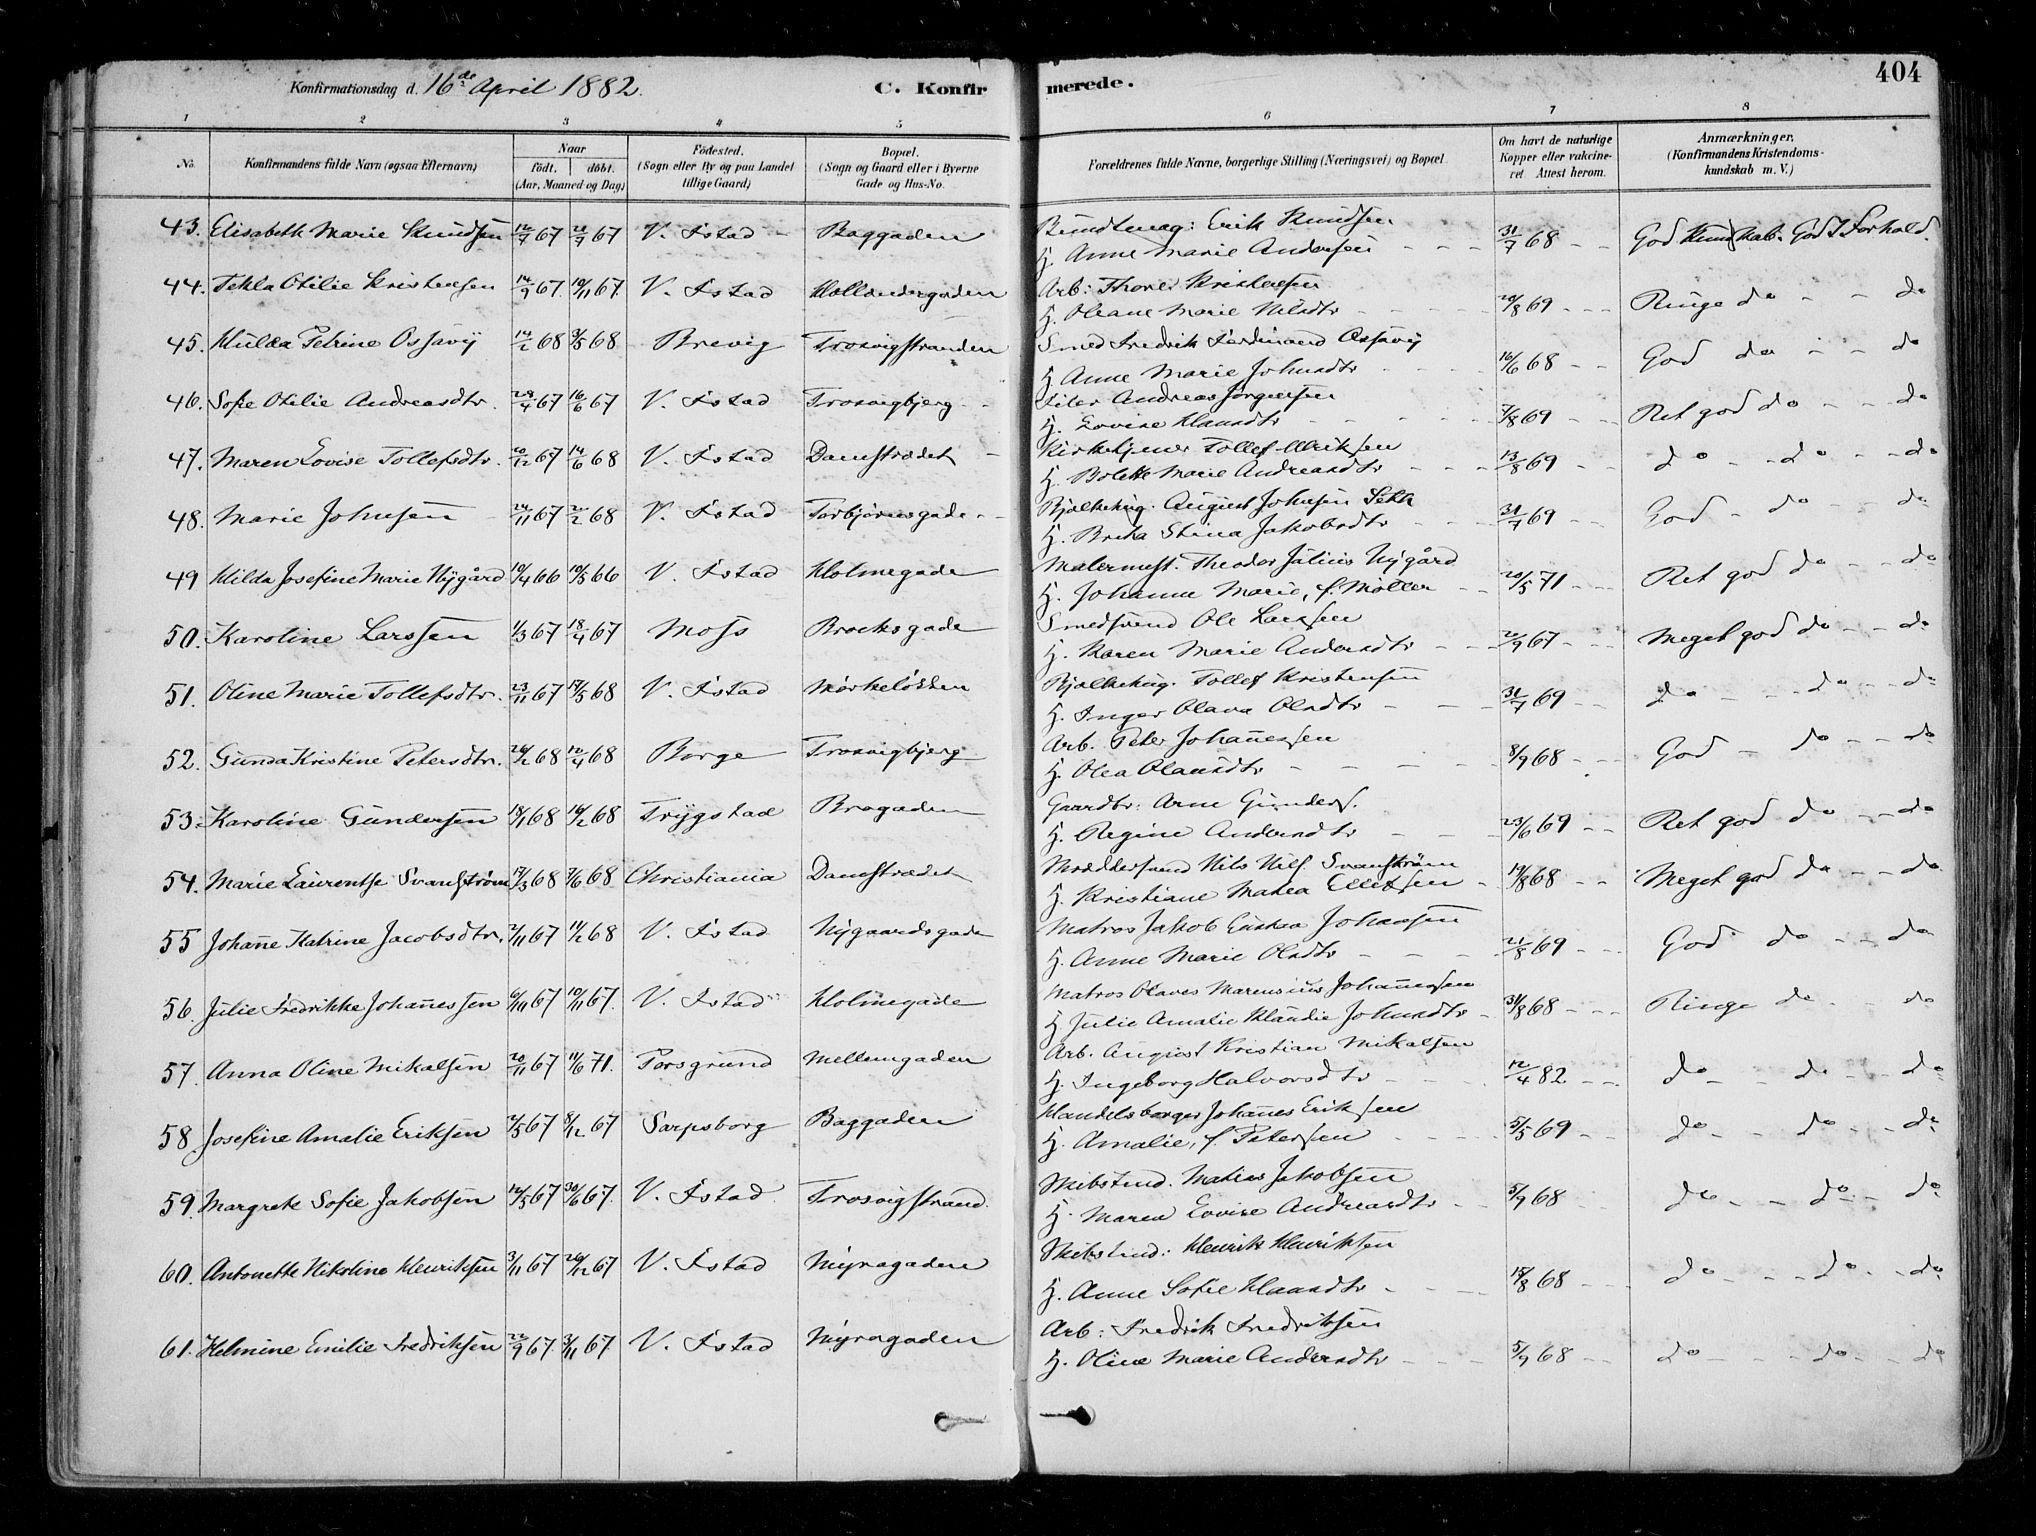 404
Konfirmationsdag d. 16de April 1882. C. Konfirmerede.
1 2 3 4 5 6 7 8
No. Konfirmandens fulde Navn (ogsaa Efternavn) Naar født. døbt. (Aar, Maaned og Dag) Fødested. (Sogn eller By og paa Landet tillige Gaard) Bopæl. (Sogn og Gaard eller i Byerne Gade og Hus-No. Forældrenes fulde Navne, borgerlige Stilling (Næringsvei) og Bopæl. Om havt de naturlige Kopper eller vakcineret Attest herom. Anmærkninger. (Konfirmandens Kristendomskundskab m. V.)
43. Elisabeth Marie Knudsen 12/7 67 21/7 67 V. Fstad Baggaden Erik Knudsen
H. Anne Marie Andersen 31/7 68 God Kundskab. God Forhold.
44. Tekla Otilie Kristensen 14/9 67. 10/11 67. V. Fstad Hollendergaden Arb: Thorer Kristensen
H. Oleane Marie Nilsdtr 20/8 69 Ringe do do
45. Hulda Petrine Ossavy 14/2 68 3/5 68 Brevig Trosvigstranden Smed Fredrik Ferdinand Ossavy
H. Anne Marie Johnsdtr 16/6 68 God do do
46. Sofie Otilie Andreasdtr. 29/4 67 16/6 67 V. Fstad Trosvigbjerg Andreas Jørgensen
H. Lovise Hansdtr 7/8 69 Ret god do do
47. Maren Lovise Tollefsdtr. 20/12 67 14/6 68 V. Fstad Damstrædet Kirketjener Tollef Ulriksen
H. Bolette Marie Andreasdtr 13/8 69 do do do
48. Marie Johnsen 24/11 67 2/2 68 V. Fstad Torbjørnsgade August Johnsen
H. Brita Stina Jakobsdtr 31/7 69 God do do
49 Hilda Josefine Marie Nygård 10/4 66 10/5 66 V. Fstad Holmegade Malermest. Theodor Julius Nygård
H. Johanne Marie, f. Møller 20/5 71 Ret god do do
50. Karoline Larssen 1/3 67 18/4 67 Moss Brocksgade Smedsvend Ole Larssen
H. Karen Marie Andersdtr 2/9 67 Meget god do do
51. Oline Marie Tollefsdtr. 23/11 67 17/5 68 V. Fstad Mørkeløkken Tollef Kristensen
H. Inger Olava Olsdtr 31/7 69 do do do
52. Gunda Kristine Petersdtr. 26/2 68 12/4 68 Borge Trosvigbjerg Arb. Peter Johannessen
H. Olea Olausdtr 8/9 68 God do do
53. Karoline Gundersen 18/1 68 16/2 68 Trygstad Brogaden Gaardbr: Arne Gunders.
H. Regine Andersdtr 23/6 69 Ret god do do
54. Marie Laurentse Svanstrøm 17/3 68 7/6 68 Christiania Damstrædet Nils Nils. Svanstrøm
H. Kristiane Matea Ellefsen 14/8 68 Meget god do do
55 Johanne Katrine Jacobsdtr. 2/11 67 11/2 68 V. Fstad Nygaardsgade Matros Jakob Johansen
H. Anne Marie Olsdtr 21/8 69 God do do
56. Julie Fredrikke Johannessen 6/10 67 10/11 67. V. Fstad Holmegade Matros Olaves Marensius Johannessen
H. Julie Amalie Klaudie Johnsdtr 31/8 68 Ringe do do
57. Anna Oline Mikalsen 20/11 67 11/6 71. Porsgrund Mellemgaden Arb. August Kristian Mikalsen
H. Ingeborg Halvorsdtr 12/4 82 do do do
58 Josefine Amalie Eriksen 2/5 67 8/12 67 Sarpsborg Baggaden Handelsborger Johannes Eriksen
H. Amalie, f. Petersen 3/5 69 do do do
59. Margrete Sofie Jakobsen 12/5 67 30/6 67. V. Fstad. Trosvigstrand. Skibstmd. Matias Jakobsen
H. Maren Lovise Andreasdtr 5/9 68 do do do
60. Antonette Nikoline Henriksen 3/11 67 26/12 67 V. Fstad Myragaden Skibstmd: Henrik Henriksen
H. Anne Sofie Hansdtr 15/8 68 do do do
61. Helmine Emilie Fredriksen 22/9 67. 3/11 67. V. Fstad Myragaden Arb: Fredrik Fredriksen
H. Oline Marie Andersdtr 5/9 68 do do do